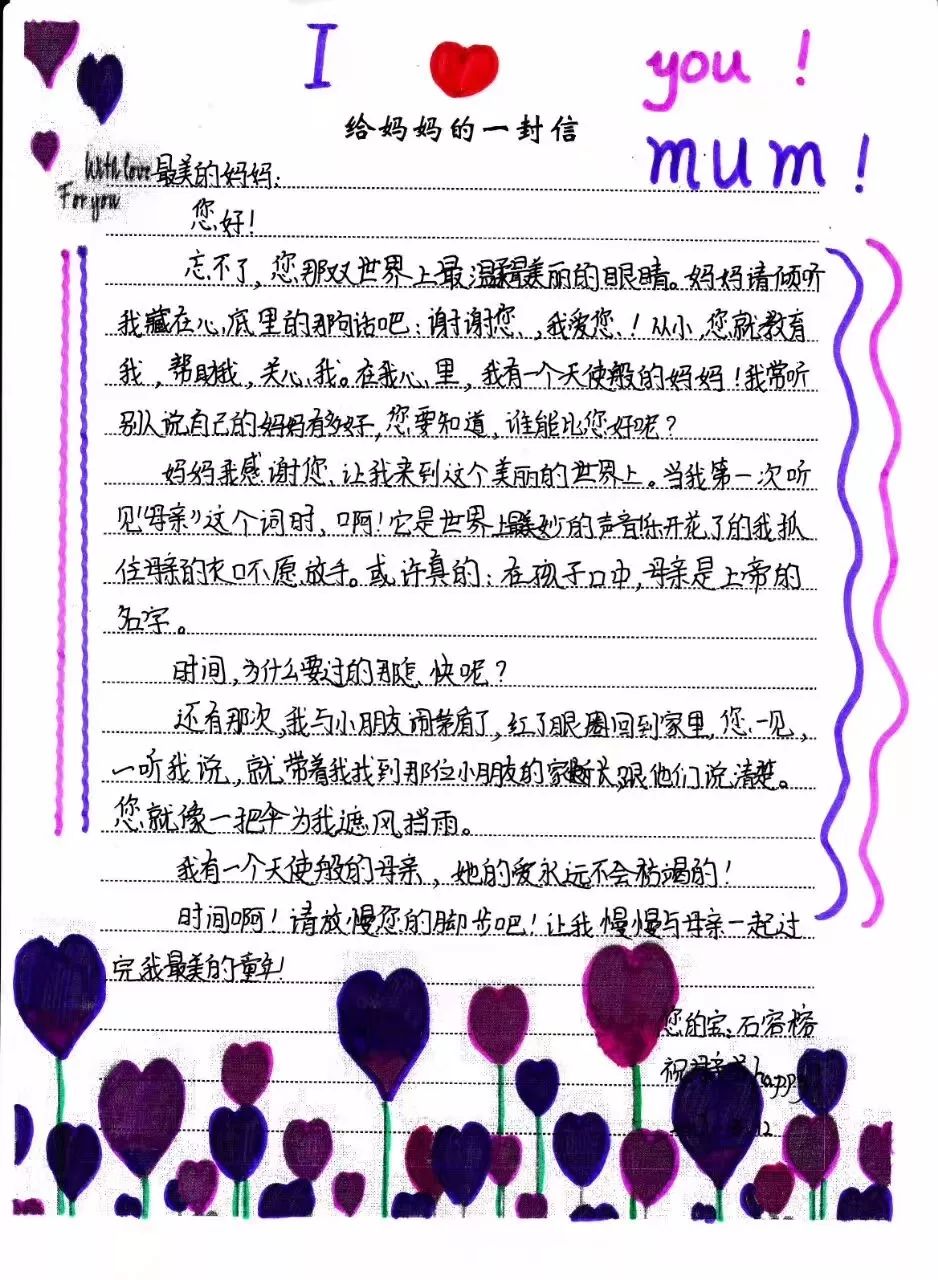 I you!
给妈妈的一封信
mum!
With love
For you
最美的妈妈:
您好!
忘不了,您那双世界上最温柔最美丽的眼睛。妈妈请倾听
我藏在心底里的那句话吧:谢谢您,我爱您!从小,您就教育
我,帮助我,关心我。在我心里,我有一个天使般的妈妈!我常听
别人说自己的妈妈有多好,您要知道,谁能比您好呢?
妈妈我感谢您,让我来到这个美丽的世界上。当我第一次听
见“母亲”这个词时,啊!它是世界上最美妙的声音乐开花了的我抓
住母亲的衣口不愿放手。或许真的:在孩子口中,母亲是上帝的
名字。
时间,为什么要过的那怎快呢?
还有那次,我与小朋友闹矛盾了,红了眼圈回到家里,您一见,
一听我说,就带着我找到那位小朋友的家长,跟他们说清楚。
您就像一把伞为我遮风挡雨。
我有一个天使般的母亲,她的爱永远不会枯竭的!
时间啊!请放慢您的脚步吧!让我慢慢与母亲一起过
完我最美的童年!
您的宝:石容榕
祝母亲节happy
12